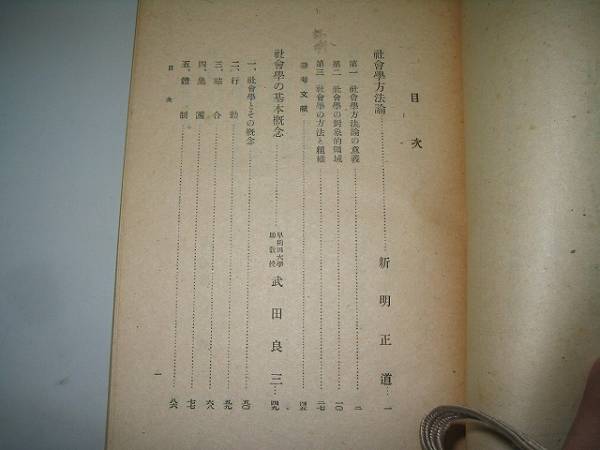 目次
社會學方法論……新明正道……一
第一 社會學方法論の意義……二
第二 社會學の對象的領域……一〇
第三 社會學の方法と組織……二七
參考文獻……四五
社會學の基本概念……早稻田大學助教授 武田良三……四九
一、社會學とその概念……五〇
二、行動……五九
三、結合……六八
四、集團……七七
五、體制……八六
目次
一